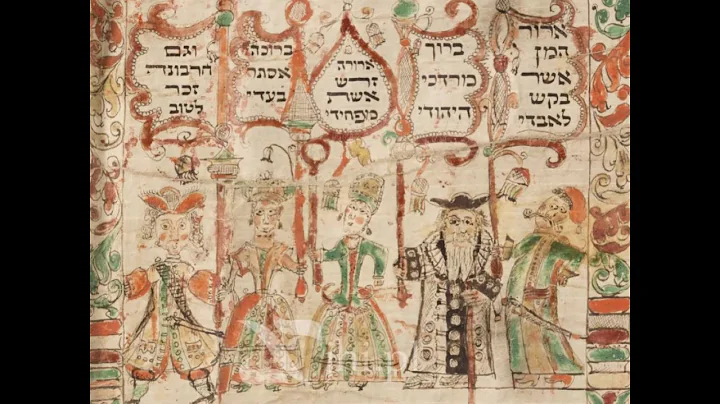 ארור
המן
אשר
בקש
לאבדי
ברוך
מרדכי
היהודי
ארורה
זרש
אשת
מפחידי
ברוכה
אסתר
בעדי
וגם
חרבונה
זכר
לטוב